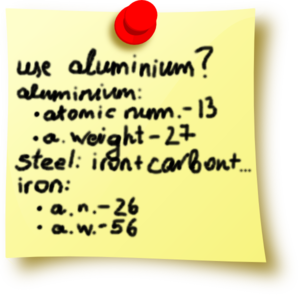 use aluminium?
aluminium:
• atomic num.-13
• a. weight-27
steel: iron+carbon+...
iron:
• a.n.-26
• a.w.-56